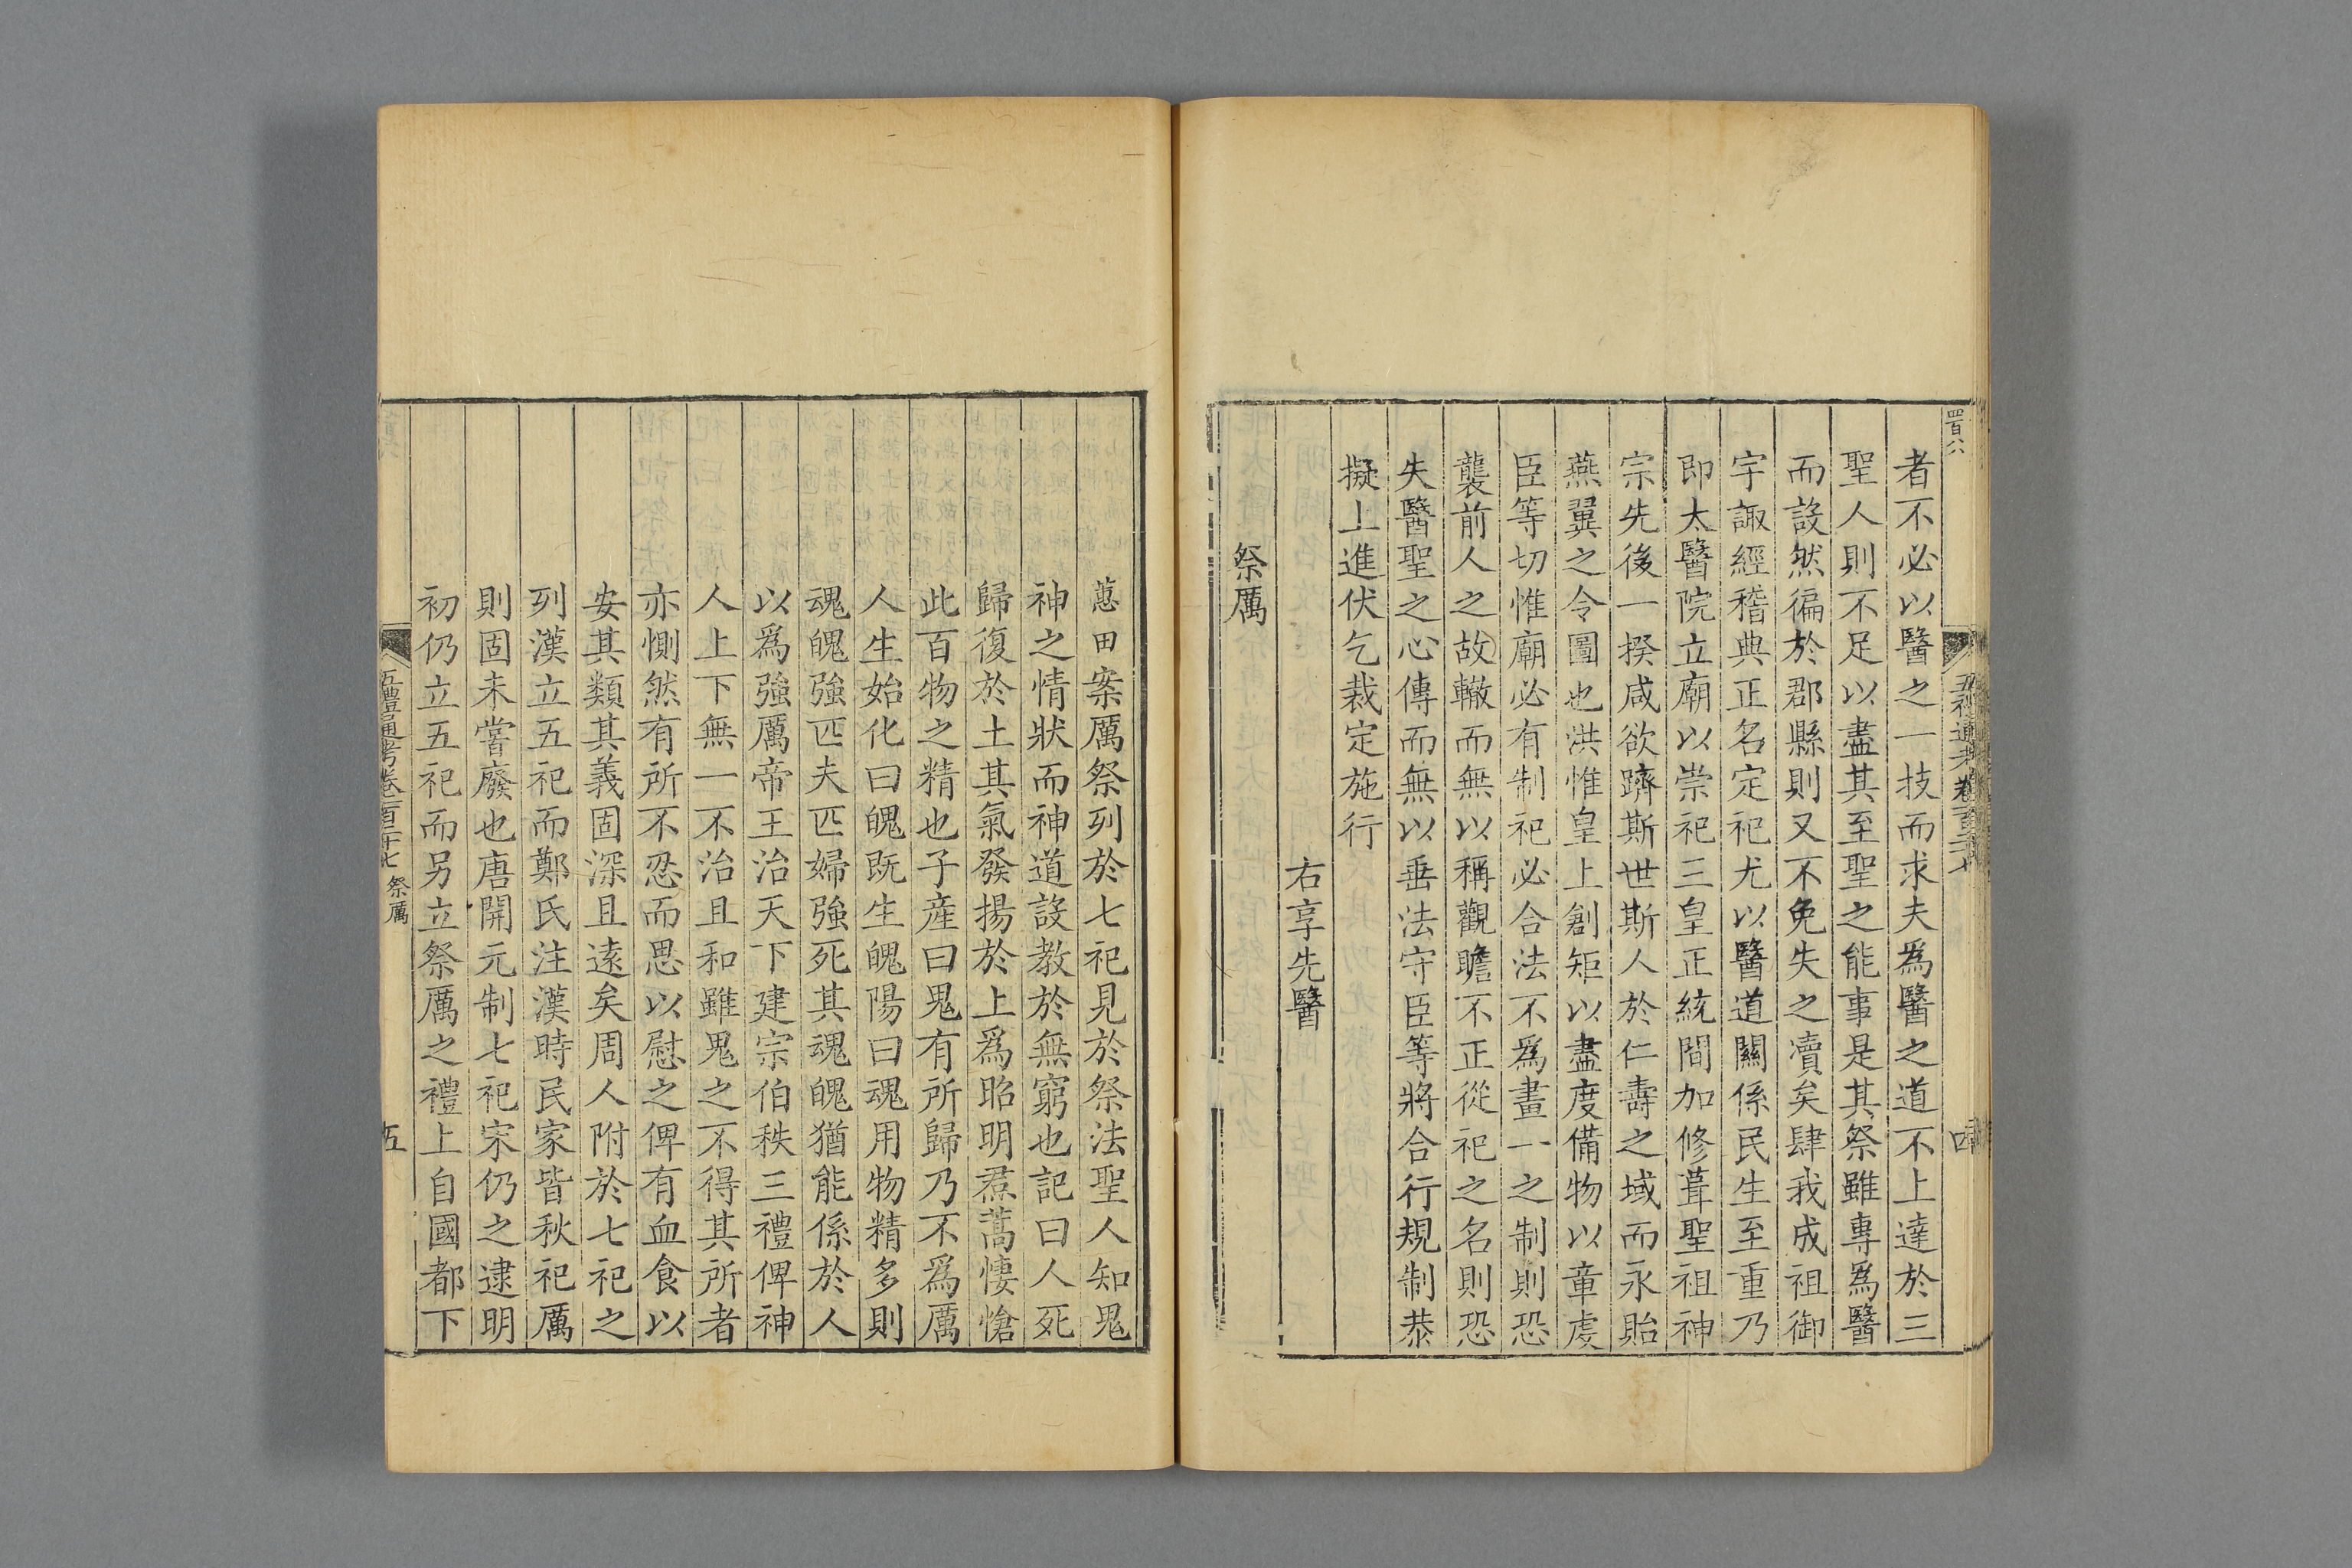 四百八
者不必以醫之一技而求夫爲醫之道不上達於三
聖人則不足以盡其至聖之能事是其祭雖專爲醫
而設然徧於郡縣則又不免失之瀆矣肆我成祖御
宇諏經稽典正名定祀尤以醫道關係民生至重乃
即太醫院立廟以崇祀三皇正統間加修葺聖祖神
宗先後一揆咸欲躋斯世斯人於仁壽之域而永貽
燕翼之令圖也洪惟皇上創矩以盡度備物以章虔
臣等切惟廟必有制祀必合法不爲畫一之制則恐
襲前人之故轍而無以稱觀瞻不正從祀之名則恐
失醫聖之心傳而無以垂法守臣等將合行規制恭
擬上進伏乞裁定施行
右享先醫
祭厲
蕙田案厲祭列於七祀見於祭法聖人知鬼
神之情狀而神道設教於無窮也記曰人死
歸復於土其氣發揚於上爲昭明焄蒿悽愴
此百物之精也子產曰鬼有所歸乃不爲厲
人生始化曰魄既生魄陽曰魂用物精多則
魂魄強匹夫匹婦強死其魂魄猶能係於人
以爲強厲帝王治天下建宗伯秩三禮俾神
人上下無一不治且和雖鬼之不得其所者
亦惻然有所不忍而思以慰之俾有血食以
安其類其義固深且遠矣周人附於七祀之
列漢立五祀而鄭氏注漢時民家皆秋祀厲
則固未嘗廢也唐開元制七祀宋仍之逮明
初仍立五祀而另立祭厲之禮上自國都下
五禮通考卷一百二十七 祭厲 五